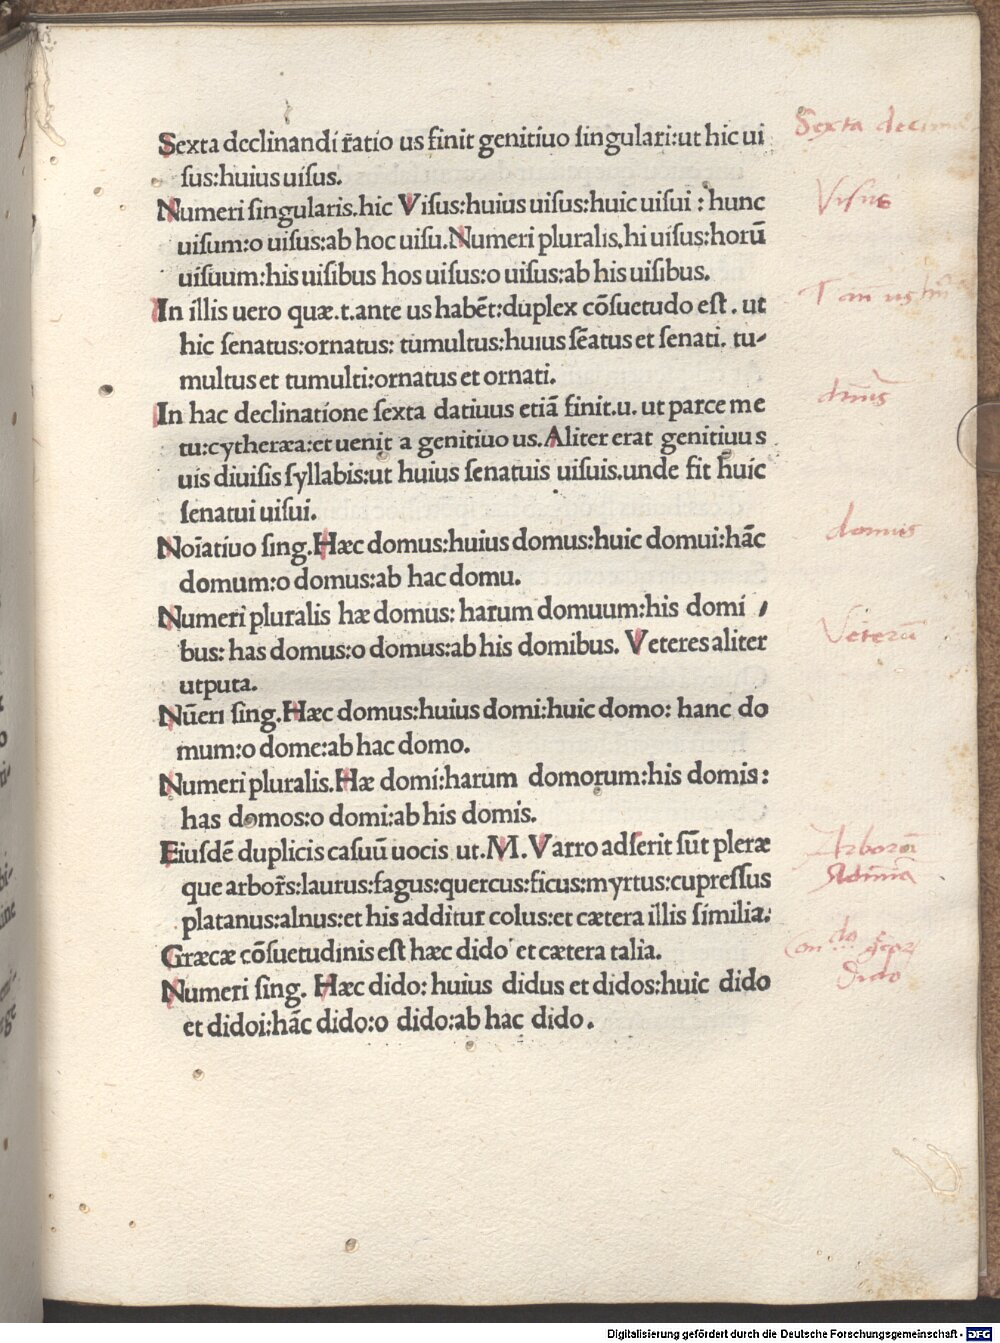 Sexta declinandi r̃atio us finit genitiuo ſingulari:ut hic ui
ſus:huius uiſus.
Numeri ſingularis.hic Viſus:huius uiſus:huic uiſui : hunc
uiſum:o uiſus:ab hoc uiſu.Numeri pluralis.hi uiſus:horũ
uiſuum:his uiſibus hos uiſus:o uiſus:ab his uiſibus.
In illis uero quæ.t.ante us habēt:duplex cōſuetudo eſt . ut
hic ſenatus:ornatus: tumultus:huius ſēatus et ſenati. tu-
multus et tumulti:ornatus et ornati.
In hac declinatione ſexta datiuus etiā finit.u. ut parce me
tu:cytheræa:et uenit a genitiuo us.Aliter erat genitiuus
uis diuiſis ſyllabis:ut huius ſenatuis uiſuis.unde fit huic
ſenatui uiſui.
Noīatiuo ſing.Hæc domus:huius domus:huic domui:hāc
domum:o domus:ab hac domu.
Numeri pluralis hæ domus: harum domuum:his domi
bus: has domus:o domus:ab his domibus. Veteres aliter
utputa.
Nūeri ſing.Hæc domus:huius domi:huic domo: hanc do
mum:o dome:ab hac domo.
Numeri pluralis.Hæ domi:harum domorum:his domis:
has domos:o domi:ab his domis.
Eiuſdē duplicis caſuū uocis ut.M.Varro adſerit ſūt pleræ
que arbor̃s:laurus:fagus:quercus:ficus:myrtus:cupreſſus
platanus:alnus:et his additur colus:et cætera illis ſimilia.
Græcæ cōſuetudinis eſt hæc dido et cætera talia.
Numeri ſing. Hæc dido: huius didus et didos:huic dido
et didoi:hāc dido:o dido:ab hac dido.
Sexta
Viſus
domus
Veterū
Dido
Digitalisierung gefördert durch die Deutsche Forschungsgemeinschaft - DFG